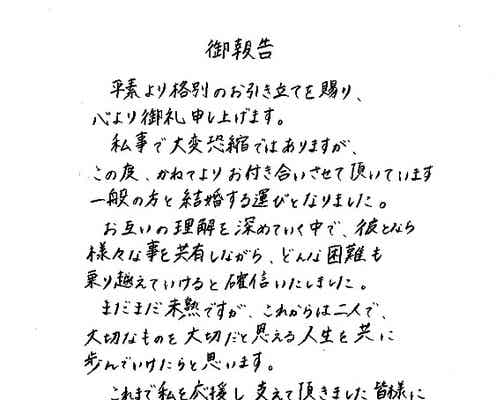 御報告
平素より格別のお引き立てを賜り、
心より御礼申し上げます。
私事で大変恐縮ではありますが、
この度、かねてよりお付き合いさせて頂いています
一般の方と結婚する運びとなりました。
お互いの理解を深めていく中で、彼となら
様々な事を共有しながら、どんな困難も
乗り越えていけると確信いたしました。
まだまだ未熟ですが、これからは二人で、
大切なものを大切だと思える人生を共に
歩んでいけたらと思います。
これまで私を応援し支えて頂きました皆様に